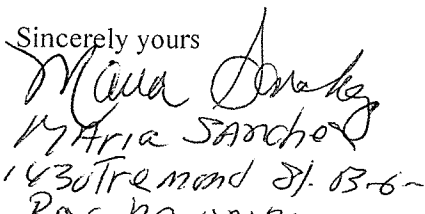 Sincerely yours
Maria Sanchez
MAria SAnchez
1430 Tremond St. B-6-